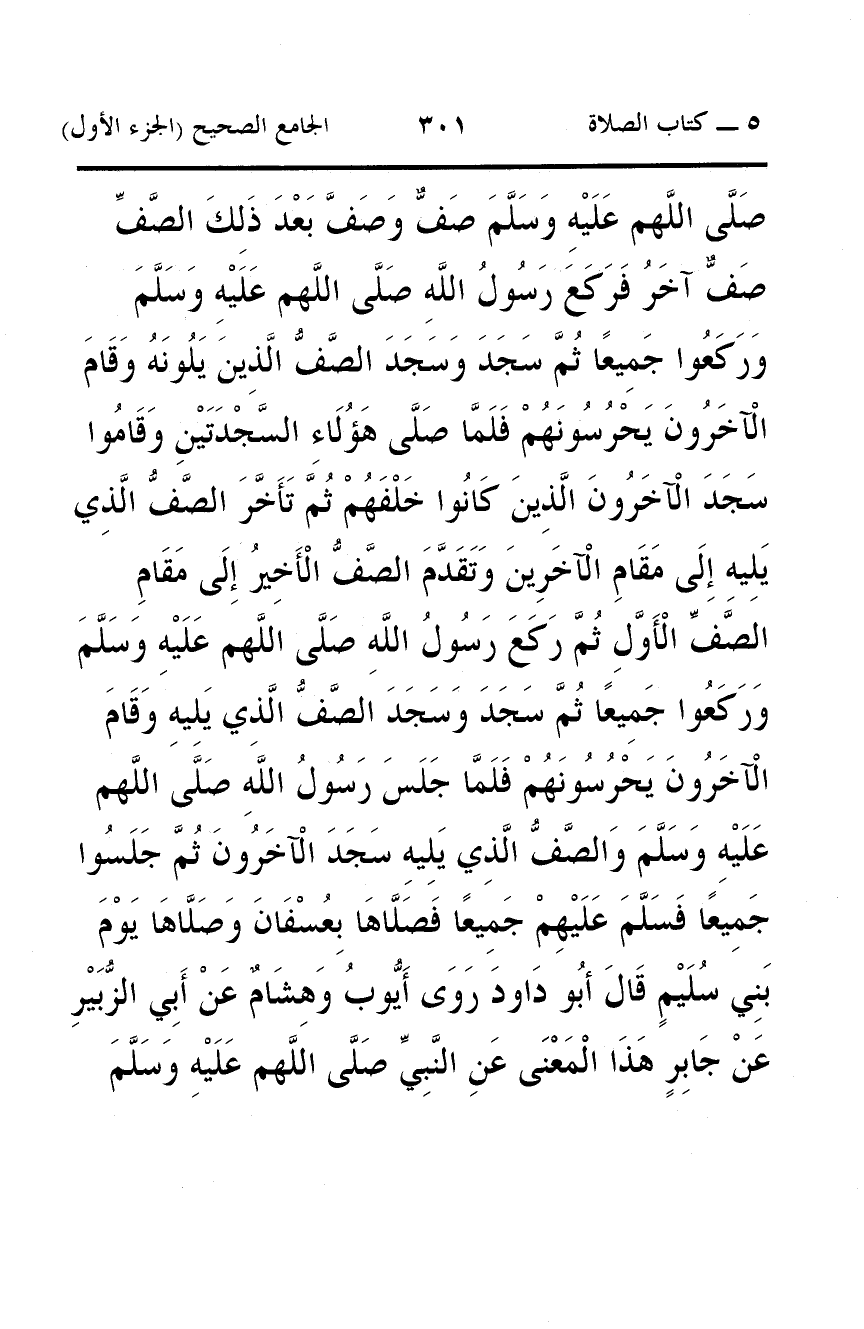 ٥ ـ كتاب الصلاة ٣٠١ الجامع الصحيح (الجزء الأول)
صَلَّى اللَّهم عَلَيْهِ وَسَلَّمَ صَفٌّ وَصَفَّ بَعْدَ ذَلِكَ الصَّفِّ
صَفٌّ آخَرُ فَرَكَعَ رَسُولُ اللَّهِ صَلَّى اللَّهم عَلَيْهِ وَسَلَّمَ
وَرَكَعُوا جَمِيعًا ثُمَّ سَجَدَ وَسَجَدَ الصَّفُّ الَّذِينَ يَلُونَهُ وَقَامَ
الْآخَرُونَ يَحْرُسُونَهُمْ فَلَمَّا صَلَّى هَؤُلَاءِ السَّجْدَتَيْنِ وَقَامُوا
سَجَدَ الْآخَرُونَ الَّذِينَ كَانُوا خَلْفَهُمْ ثُمَّ تَأَخَّرَ الصَّفُّ الَّذِي
يَلِيهِ إِلَى مَقَامِ الْآخَرِينَ وَتَقَدَّمَ الصَّفُّ الْأَخِيرُ إِلَى مَقَامِ
الصَّفِّ الْأَوَّلِ ثُمَّ رَكَعَ رَسُولُ اللَّهِ صَلَّى اللَّهم عَلَيْهِ وَسَلَّمَ
وَرَكَعُوا جَمِيعًا ثُمَّ سَجَدَ وَسَجَدَ الصَّفُّ الَّذِي يَلِيهِ وَقَامَ
الْآخَرُونَ يَحْرُسُونَهُمْ فَلَمَّا جَلَسَ رَسُولُ اللَّهِ صَلَّى اللَّهم
عَلَيْهِ وَسَلَّمَ وَالصَّفُّ الَّذِي يَلِيهِ سَجَدَ الْآخَرُونَ ثُمَّ جَلَسُوا
جَمِيعًا فَسَلَّمَ عَلَيْهِمْ جَمِيعًا فَصَلَّاهَا بِعُسْفَانَ وَصَلَّاهَا يَوْمَ
بَنِي سُلَيْمٍ قَالَ أَبُو دَاودَ رَوَى أَيُّوبُ وَهِشَامٌ عَنْ أَبِي الزُّبَيْرِ
عَنْ جَابِرٍ هَذَا الْمَعْنَى عَنِ النَّبِيِّ صَلَّى اللَّهم عَلَيْهِ وَسَلَّمَ